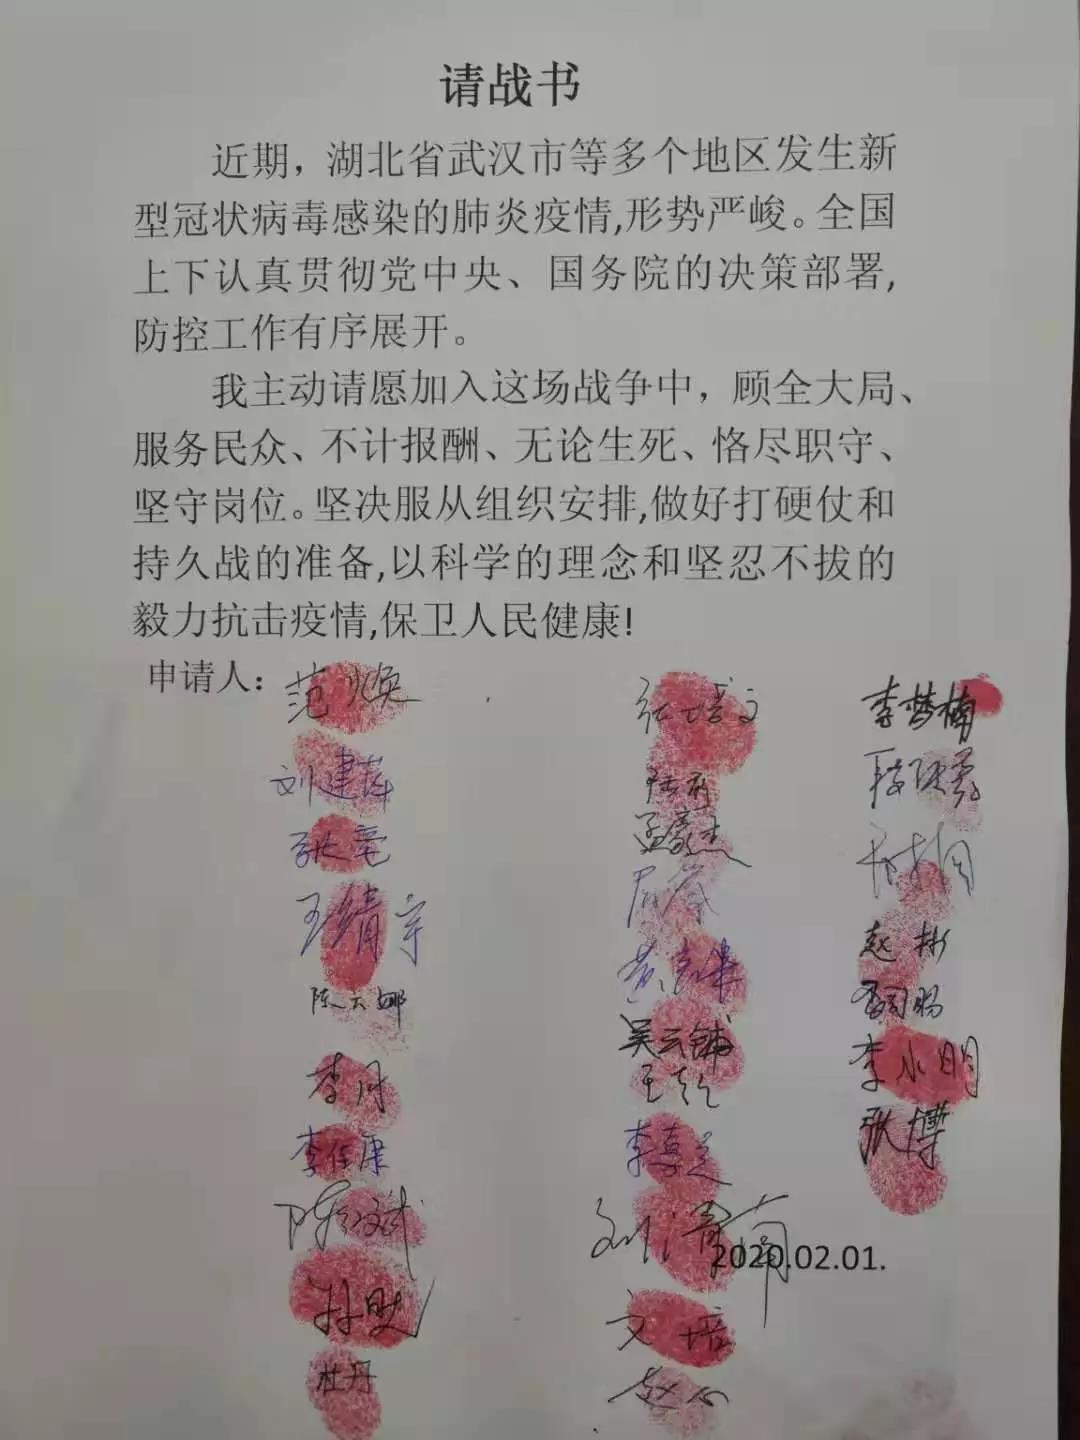 请战书
近期，湖北省武汉市等多个地区发生新
型冠状病毒感染的肺炎疫情,形势严峻。全国
上下认真贯彻党中央、国务院的决策部署,
防控工作有序展开。
我主动请愿加入这场战争中，顾全大局、
服务民众、不计报酬、无论生死、恪尽职守、
坚守岗位。坚决服从组织安排,做好打硬仗和
持久战的准备,以科学的理念和坚忍不拔的
毅力抗击疫情,保卫人民健康!
申请人：
范焕 张培文 李梦楠
刘建萍
张亮 孟豪杰
王绪宇
陈云娜 赵彬
李月 吴云铺 李永明
李佳康 张博
文培
杜丹
2020.02.01.